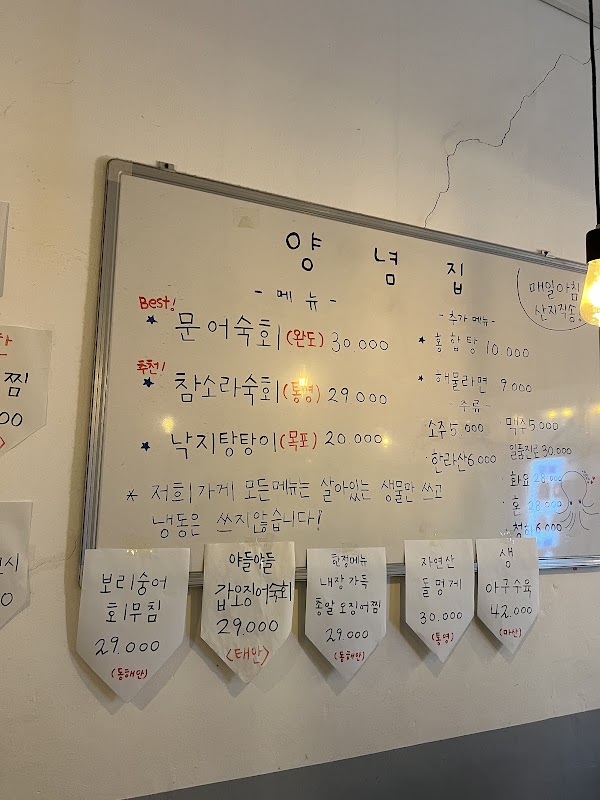 양념집
매일아침
산지직송
- 메뉴 -
Best!
★ 문어숙회(완도) 30.000
추천!
★ 참소라숙회(통영) 29.000
★ 낙지탕탕이(목포) 20.000
※ 저희가게 모든메뉴는 살아있는 생물만 쓰고
냉동은 쓰지않습니다!
- 추가메뉴 -
★ 홍합탕 10.000
★ 해물라면 9.000
- 주류 -
· 소주 5.000
· 한라산 6.000
· 맥주 5.000
· 일품진로 30.000
· 화요 28.000
· 혼 28.000
· 청하 6.000
찜
00
시
0
보리숭어
회무침
29.000
(동해안)
야들야들
갑오징어숙회
29.000
<태안>
한정메뉴
내장 가득
총알 오징어찜
29.000
(동해안)
자연산
돌멍게
30.000
(통영)
생
아구수육
42.000
(마산)